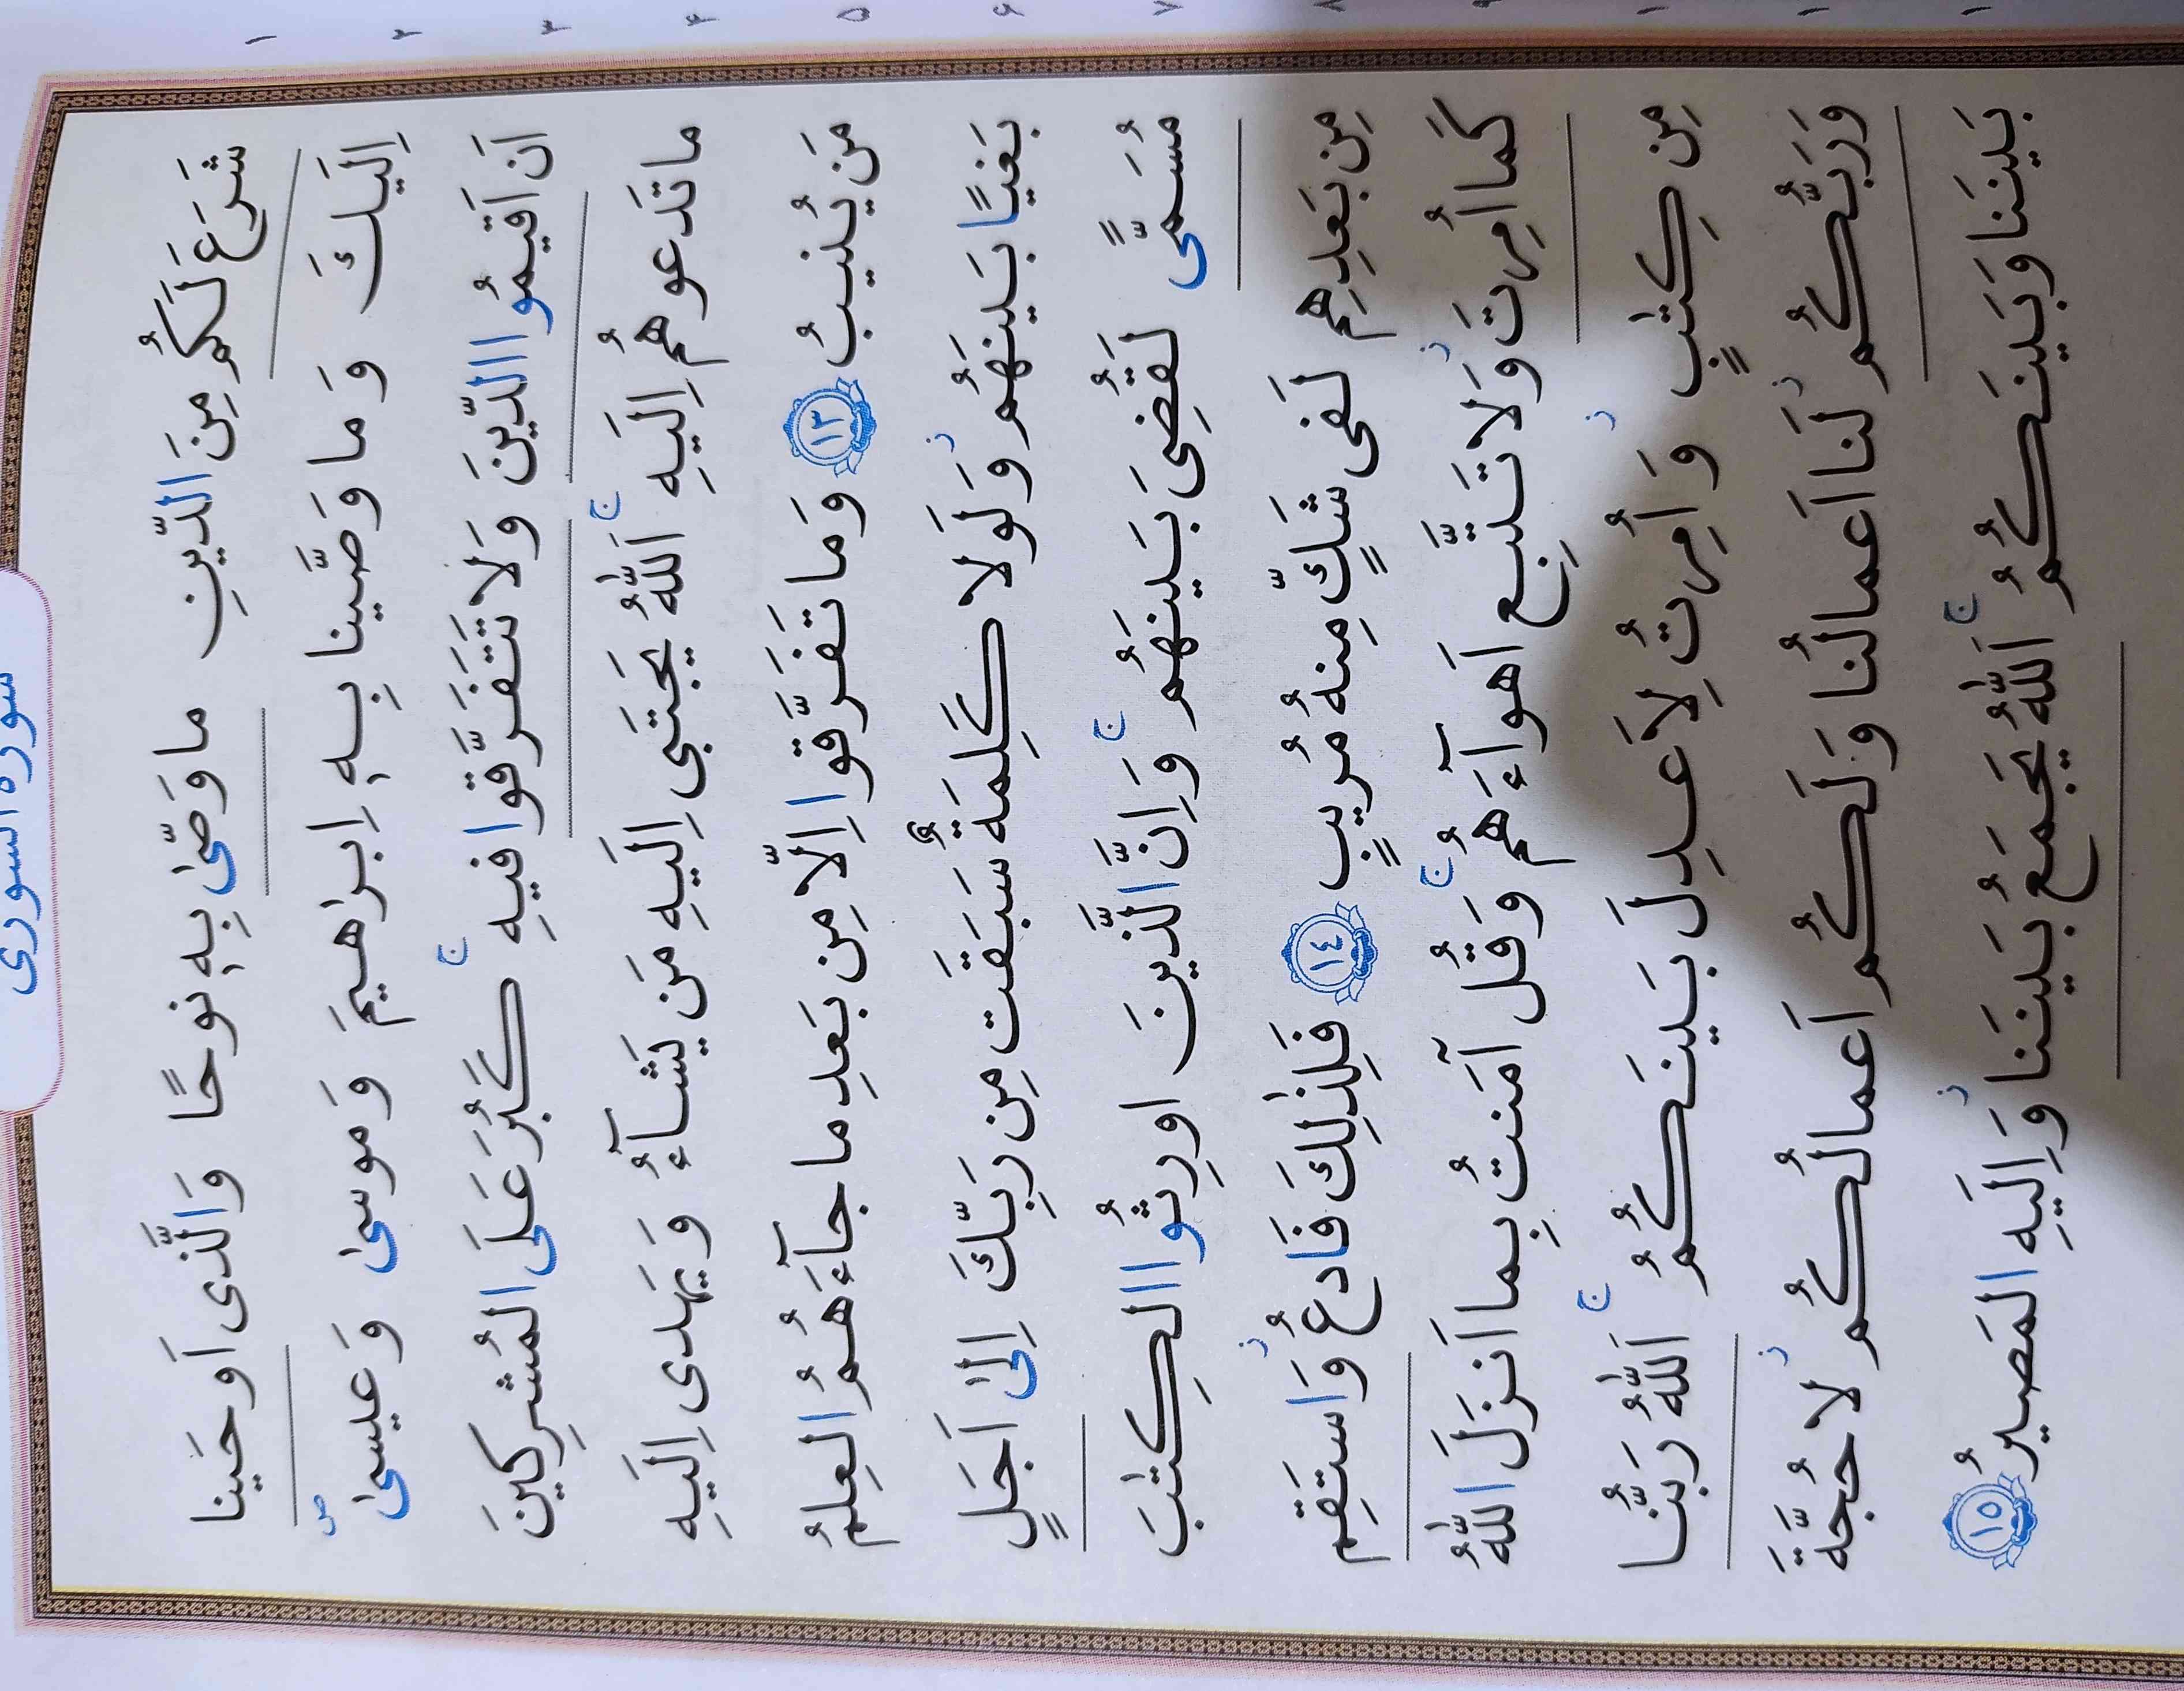 سورة الشورى
شَرَعَ لَكُم مِنَ الدّينِ ما وَصّىٰ بِهِ نوحًا وَالَّذى اَوحَينا ١
اِلَيكَ وَ ما وَصَّينا بِهِ اِبراهيمَ وَ موسىٰ وَ عيسىٰ ۖ ٢
اَن اَقيمُوا الدّينَ وَ لا تَتَفَرَّقوا فيهِ ۚ كَبُرَ عَلَى المُشرِكينَ ٣
ما تَدعوهُم اِلَيهِ ۚ اَللّٰهُ يَجتَبى اِلَيهِ مَن يَشآءُ وَ يَهدى اِلَيهِ ۴
مَن يُنيبُ ﴿١٣﴾ وَ ما تَفَرَّقوا اِلّا مِن بَعدِ ما جآءَهُمُ العِلمُ ۵
بَغيًا بَينَهُم ۚ وَ لَولا كَلِمَةٌ سَبَقَت مِن رَبِّكَ اِلىٰ اَجَلٍ ۶
مُسَمًّى لَقُضِىَ بَينَهُم ۚ وَ اِنَّ الَّذينَ اورِثُوا الكِتٰبَ ٧
مِن بَعدِهِم لَفى شَكٍّ مِنهُ مُريبٍ ﴿١٤﴾ فَلِذٰلِكَ فَادعُ ۖ وَ استَقِم ٨
كَما اُمِرتَ ۖ وَ لا تَتَّبِع اَهوآءَهُم ۖ وَ قُل آمَنتُ بِما اَنزَلَ اللّٰهُ ٩
مِن كِتٰبٍ ۖ وَ اُمِرتُ لِاَعدِلَ بَينَكُمُ ۖ اَللّٰهُ رَبُّنا
وَ رَبُّكُم ۖ لَنا اَعمالُنا وَ لَكُم اَعمالُكُم ۖ لا حُجَّةَ
بَينَنا وَ بَينَكُمُ ۖ اَللّٰهُ يَجمَعُ بَينَنا ۖ وَ اِلَيهِ المَصيرُ ﴿١٥﴾